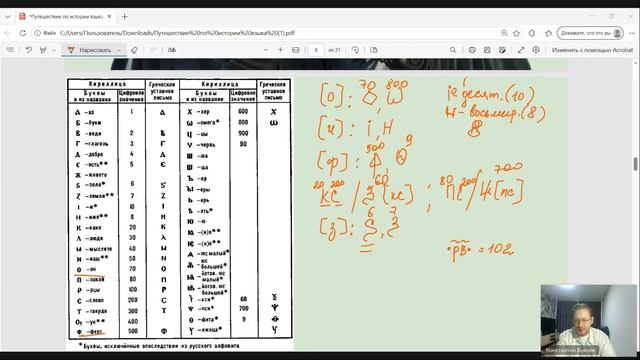 *Путешествие по истории языка
C:/Users/Пользователь/Downloads/Путешествие%20по%20истории%20языка%20(1).pdf
Нарисовать
8 из 21
Изменить с помощью Acrobat
Кириллица
Буквы и их название
Цифровое значение
Греческое уставное письмо
Кириллица
Буквы и их название
Цифровое значение
Греческое уставное письмо
А – аз 1
Б – буки
В – веди 2
Г – глаголь 3
Д – добро 4
Є – есть** 5
Ж – живете
Ѕ – зело* 6
З – земля** 7
І – и* 10
И – иже** 8
К – како 20
Л – люди 30
М – мыслете 40
Н – наш** 50
О – он 70
П – покой 80
Р – рцы 100
С – слово 200
Т – твердо 300
Оу – ук** 400
Ф – ферт 500
Х – хер 600 Χ
Ѡ – омега* 800 ω
Ц – цы 900
Ч – червь 90
Ш – ша
Щ – ша
Ъ – ер
Ы – еры
Ь – ерь
Ѣ – ять*
Ю – (ю)**
Ѧ – юс малый*
юс большой*
йотов. юс малый*
йотов. юс большой*
Ѯ – кси* 60 Ξ
Ѱ – пси* 700 Ψ
Ѳ – фита* 9 Θ
Ѵ – ижица* Υ
* Буквы, исключённые впоследствии из русского алфавита
70 800
[о]: О, Ѡ
[и]: і, Н
і десят. (10)
Н – восьмер. (8)
500 9
[ф]: Ф, Ѳ
20 200 60
КС / Ѯ [кс] ;
80 200 700
ПС / Ѱ [пс]
6 7
[з]: Ѕ, З
·р҃в҃· = 102
Константин Буянов